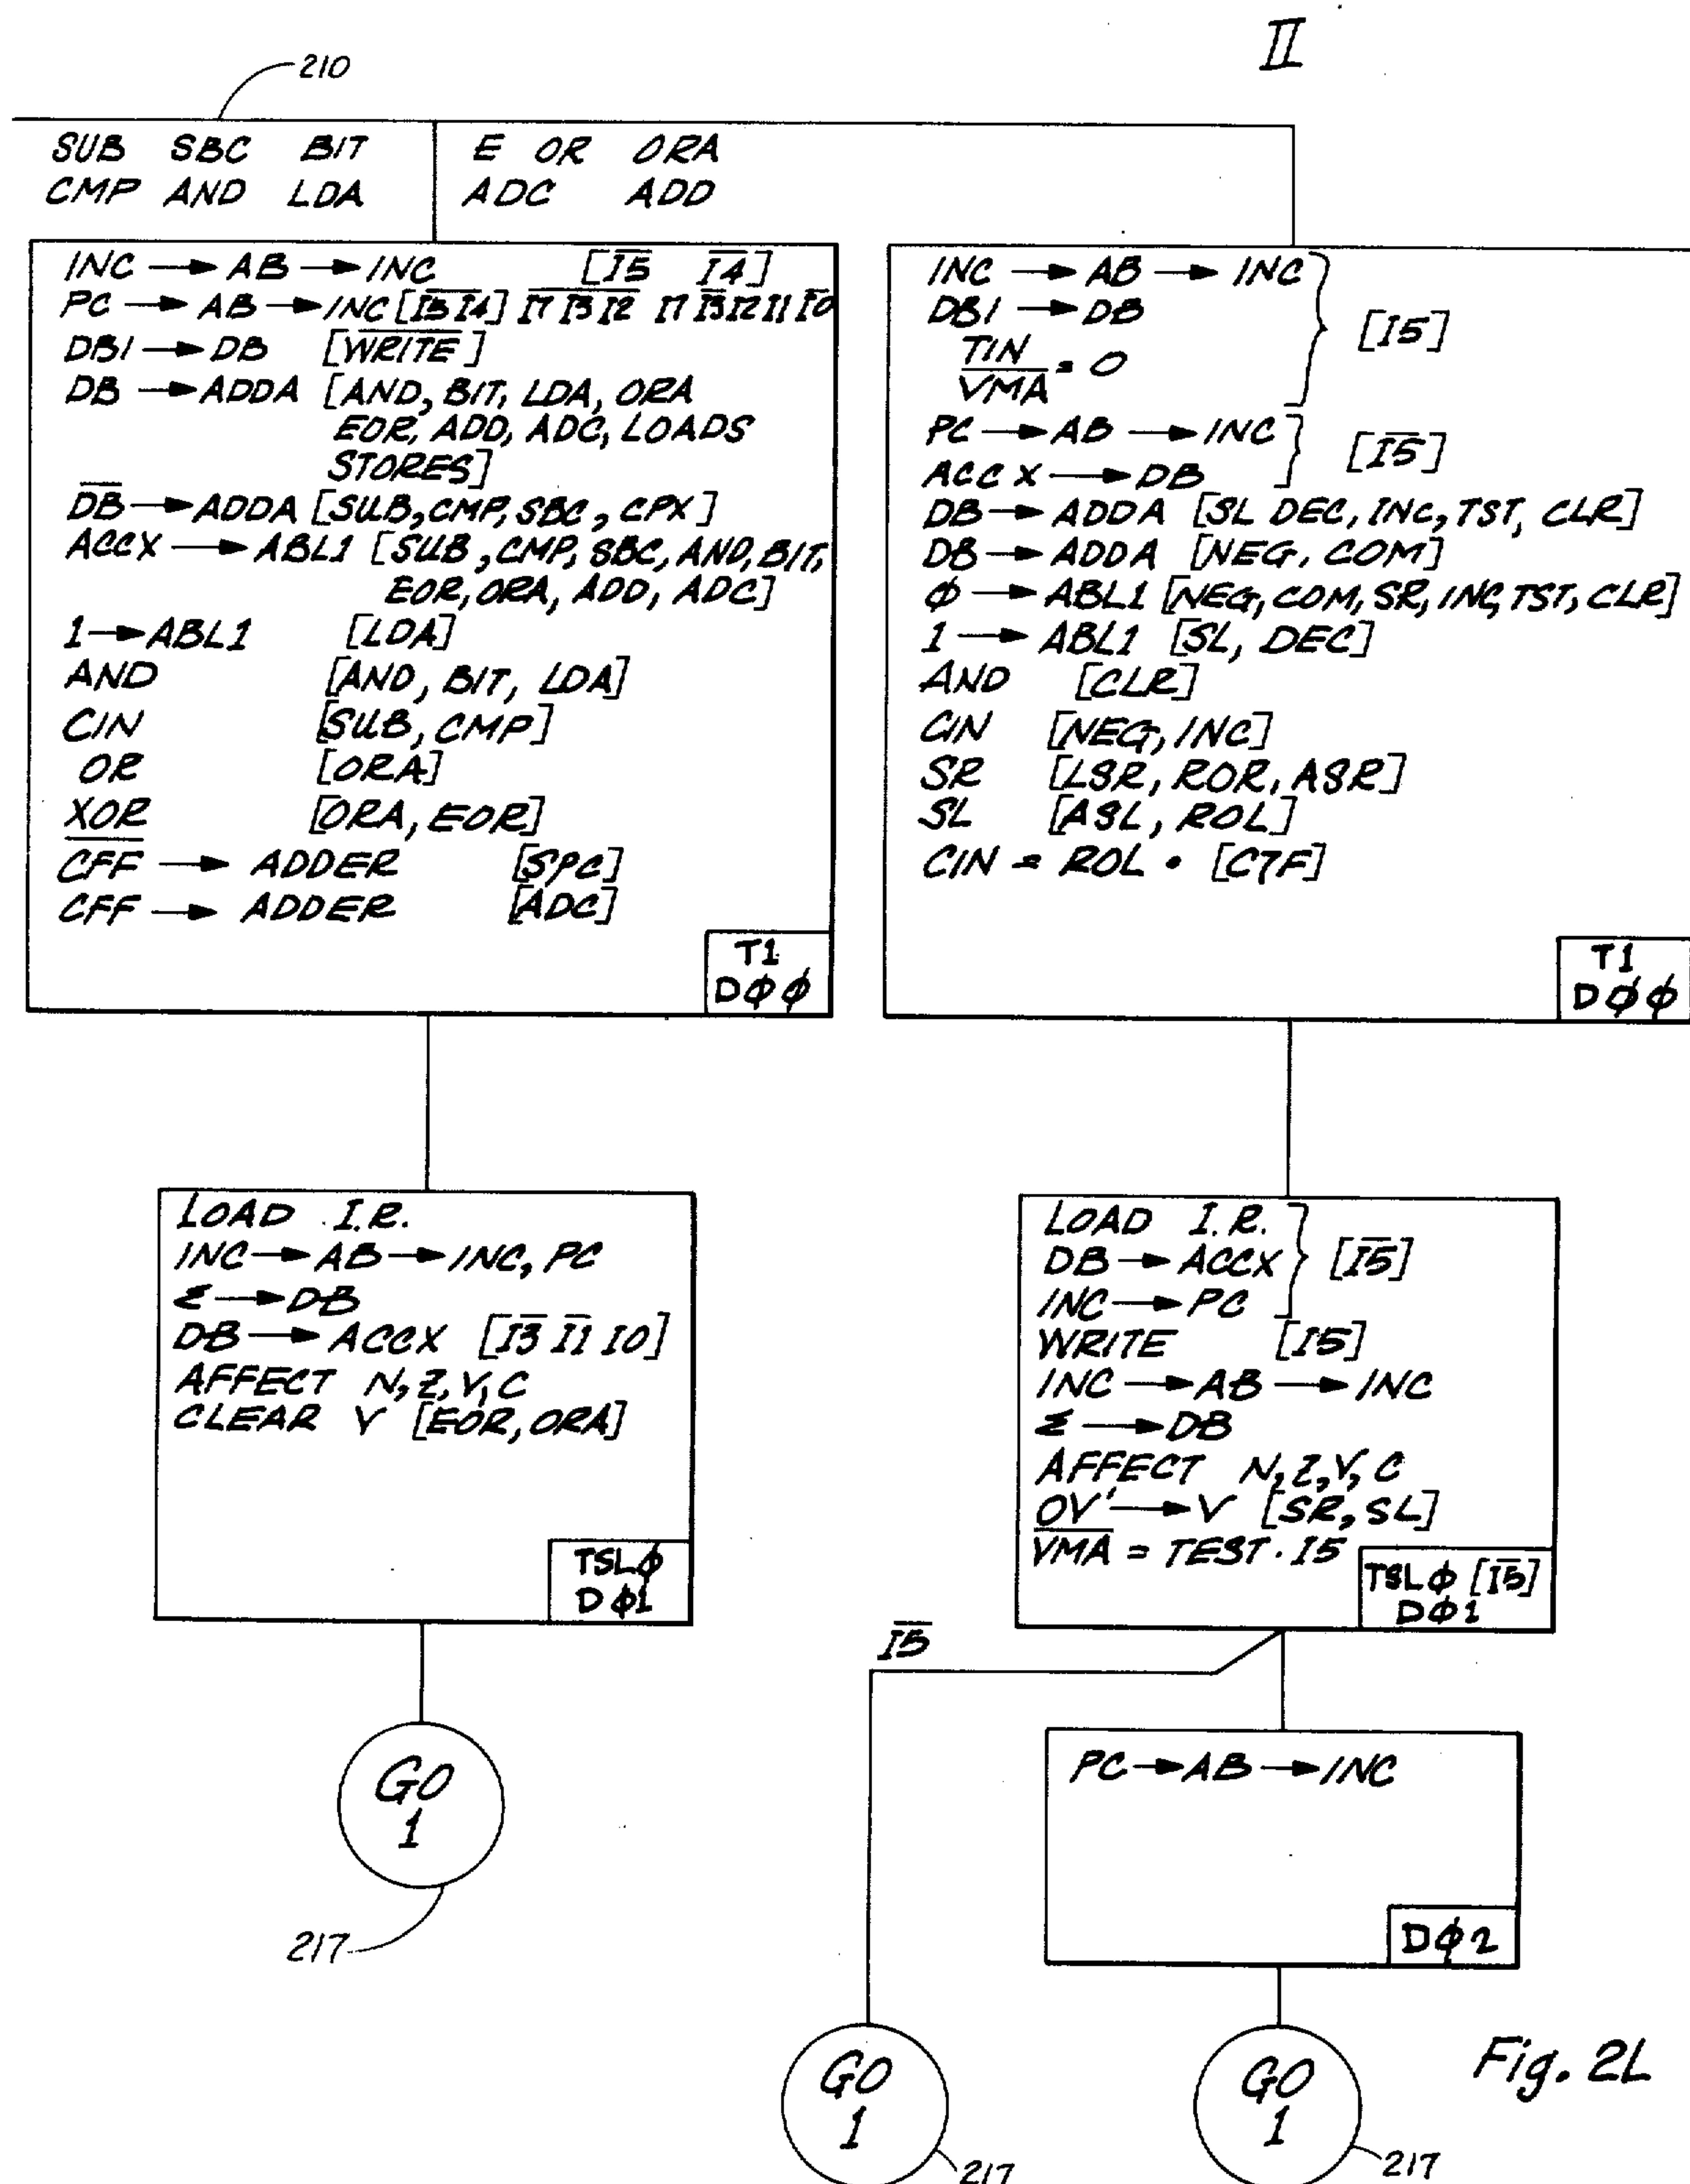 II
210
SUB SBC BIT
CMP AND LDA
E OR ORA
ADC ADD
INC → AB → INC [I̅5̅ I̅4̅]
PC → AB → INC [I̅5̅ I̅4̅] I̅7̅ I̅3̅ I̅2̅ I7 I̅3̅ I2 I1 I̅0̅
DBI → DB [W̅R̅I̅T̅E̅]
DB → ADDA [AND, BIT, LDA, ORA
EOR, ADD, ADC, LOADS
STORES]
D̅B̅ → ADDA [SUB, CMP, SBC, CPX]
ACCX → ABL1 [SUB, CMP, SBC, AND, BIT,
EOR, ORA, ADD, ADC]
1 → ABL1 [LDA]
AND [AND, BIT, LDA]
CIN [SUB, CMP]
OR [ORA]
XOR [ORA, EOR]
C̅F̅F̅ → ADDER [SPC]
CFF → ADDER [ADC]
T1
DØØ
INC → AB → INC
DBI → DB
TIN
V̅M̅A̅ = 0
[I5]
PC → AB → INC
ACCX → DB
[I̅5̅]
DB → ADDA [SL DEC, INC, TST, CLR]
DB → ADDA [NEG, COM]
Ø → ABL1 [NEG, COM, SR, INC, TST, CLR]
1 → ABL1 [SL, DEC]
AND [CLR]
CIN [NEG, INC]
SR [LSR, ROR, ASR]
SL [ASL, ROL]
CIN = ROL • [C7F]
T1
DØØ
LOAD I.R.
INC → AB → INC, PC
Σ → DB
DB → ACCX [I̅3̅ I̅1̅ I0]
AFFECT N, Z, V, C
CLEAR V [EOR, ORA]
TSLØ
DØ1
GO
1
217
LOAD I.R.
DB → ACCX
INC → PC
[I̅5̅]
WRITE [I5]
INC → AB → INC
Σ → DB
AFFECT N, Z, V, C
OV' → V [SR, SL]
V̅M̅A̅ = TEST · I5
TSLØ [I̅5̅]
DØ1
I̅5̅
PC → AB → INC
DØ2
GO
1
217
GO
1
217
Fig. 2L